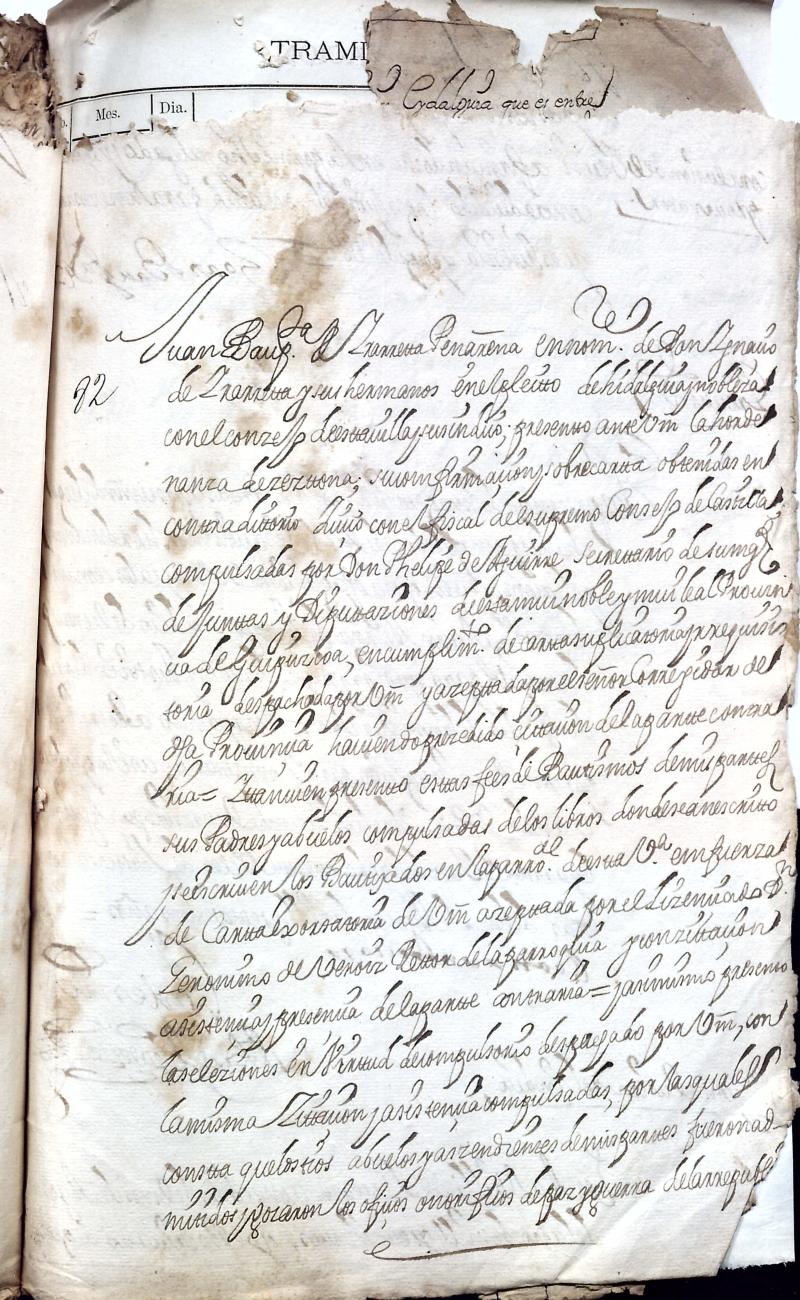 TRAMI
Mes. Dia.
Cydalguia que es entre
82
Juan Baupta de Yrarreta Penarena en nom. de Don Ygnacio
de Yrarreta y sus hermanos en el pleitto de hidalguia y nobleza
con el conzejo de esta villa y su sindico; presento ante Vm la horde
nanza de zeztona, su confirmacion y sobrecarta obtenidas en
contradittorio Juicio con el fiscal del supremo Consejo de Castilla
compulsadas por Don Phelipe de Aguirre, secrettario de su magd
de Junttas y Diputaziones de esta mui noble y mui leal Provin
cia de Guipuzcoa, en cumplimto. de cartta suplicatoria y rrequisi
toria despachada por Vm y azeptada por el señor Corregidor de
dha Provincia haviendo prezedido cittacion de la partte contra
ria = Y ttanvien presento esttas fees de Bautismos de mis parttes
sus Padres y abuelos compulsadas de los libros donde se an escritto
y se escriven los Bautizados en la parrol. de esta Va. en fuerza
de Cartta exortatoria de Vm azeptada por el Lizenciado Dn
Geronimo de Veroiz Rector de la parroquia y con zittacion
asistencia y presencia de la partte contraria = y asimismo presento
las eleziones en Virtud de compulsorio despachado por Vm, con
la misma Zittacion y asistencia compulsadas, por las quales
constta que los tios abuelos y aszendientes de mis parttes fueron ad-
mitidos y gozaron los ofizios onorificos de paz y guerra de la rrepubli